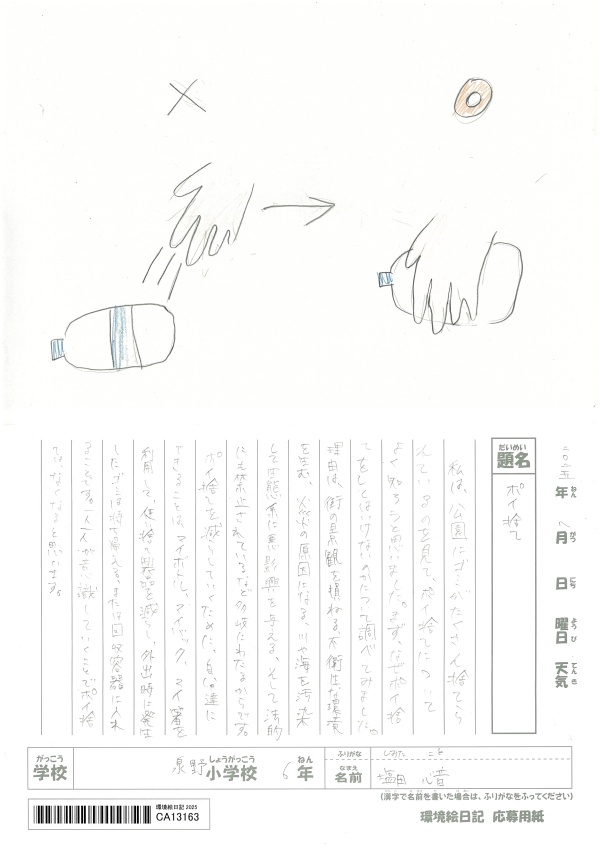 二〇二五年八月 日 曜日 天気
ねん がつ にち ようび てんき
だいめい
題名
ポイ捨て
私は、公園にゴミがたくさん捨てら
れているのを見て、ポイ捨てについて
よく知ろうと思いました。まず、なぜポイ捨
てをしてはいけないのかについて調べてみました。
理由は、街の景観を損ねる、不衛生な環境
を生む、火災の原因になる、川や海を汚染
して生態系に悪影響を与える、そして法的
にも禁止されているなど多岐にわたるからです。
ポイ捨てを減らしていくために、自分達に
できることは、マイボトル、マイバック、マイ箸を
利用して、使い捨て容器を減らし、外出時に発生
したゴミは持ち帰える、または回収容器に入れ
ることです。一人一人が意識していくことでポイ捨
ては、なくなると思います。
がっこう
学校
泉野
しょうがっこう
小学校
6
ねん
年
ふりがな
しおた こと
なまえ
名前
塩田 心音
(漢字で名前を書いた場合は、ふりがなをふってください)
環境絵日記 2025
CA13163
環境絵日記 応募用紙